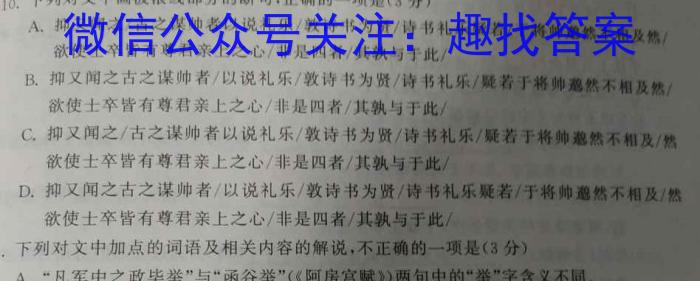 10. 下列对文中画波浪线部分的断句,正确的一项是(3分)
A. 抑
微信公众号关注：趣找答案
及然/
欲使士卒皆有尊君亲上之心/非是四者/其孰与于此/
B. 抑又闻之古之谋帅者/以说礼乐/敦诗书为贤/诗书礼乐/疑若于将帅邈然不相及/然/
欲使士卒皆有尊君亲上之心/非是四者/其孰与于此/
C. 抑又闻之/古之谋帅者/以说礼乐/敦诗书为贤/诗书礼乐/疑若于将帅邈然不相及/然
欲使士卒皆有尊君亲上之心/非是四者/其孰与于此/
D. 抑又闻之古之谋帅者/以说礼乐/敦诗书为贤/诗书礼乐疑若/于将帅邈然不相及/然
欲使士卒皆有尊君亲上之心/非是四者/其孰与于此/
. 下列对文中加点的词语及相关内容的解说,不正确的一项是(3分)
A. “凡军中之政毕举”与“函谷举”(《阿房宫赋》)两句中的“举”字含义不同。